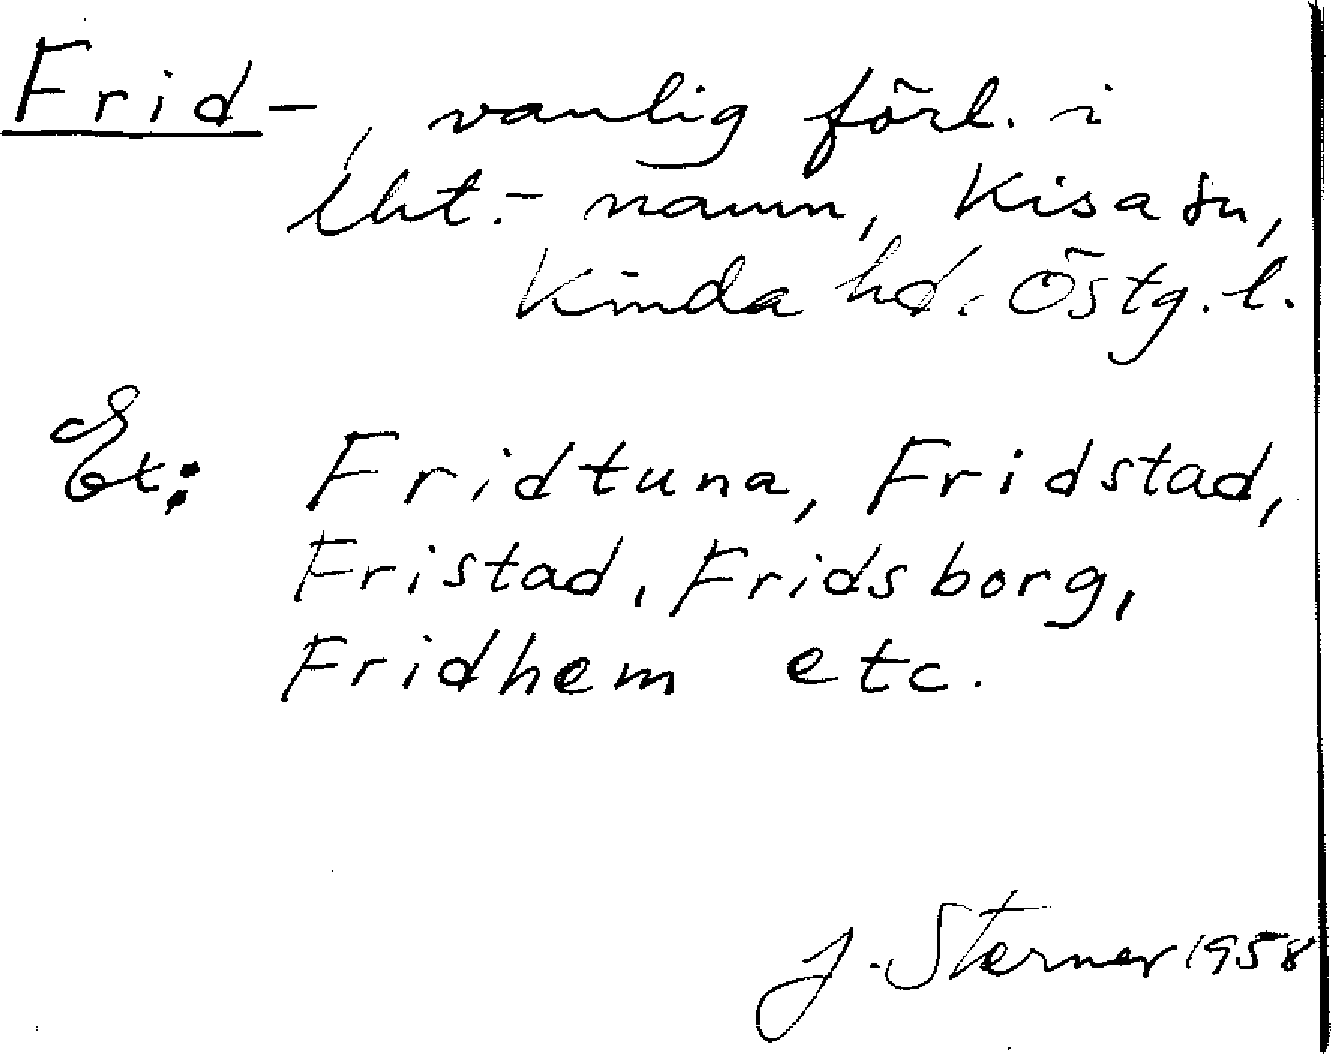 Frid-, vanlig förl. i
lht.-namn, Kisa sn,
Kinda hd. Östg. l.
Ex: Fridtuna, Fridstad,
Fristad, Fridsborg,
Fridhem etc.
J. Sterner 1958